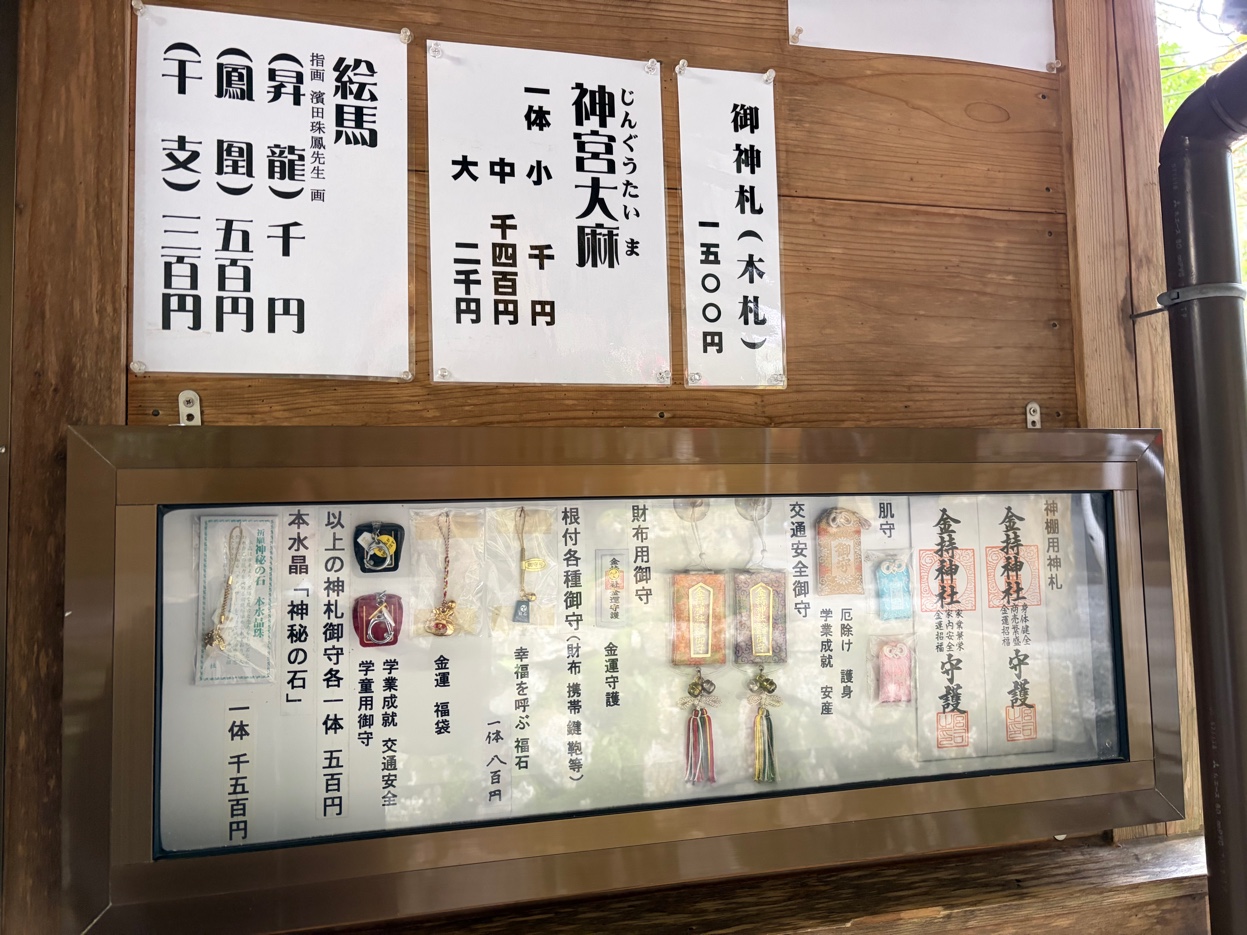 御神札(木札)
一五〇〇円
じんぐうたいま
神宮大麻
一体 小 千円
中 千四百円
大 二千円
絵馬
指画 濱田珠鳳先生 画
(昇龍) 千円
(鳳凰) 五百円
(干支) 三百円
神棚用神札
金持神社
守護
金持神社
守護
肌守
厄除け 護身
学業成就 安産
交通安全御守
財布用御守
金運守護
根付各種御守(財布 携帯 鍵 鞄等)
幸福を呼ぶ福石
一体 八百円
金運 福袋
学業成就 交通安全
学童用御守
以上の神札御守各一体 五百円
本水晶「神秘の石」
一体 千五百円
祈願神秘の石 本水晶珠